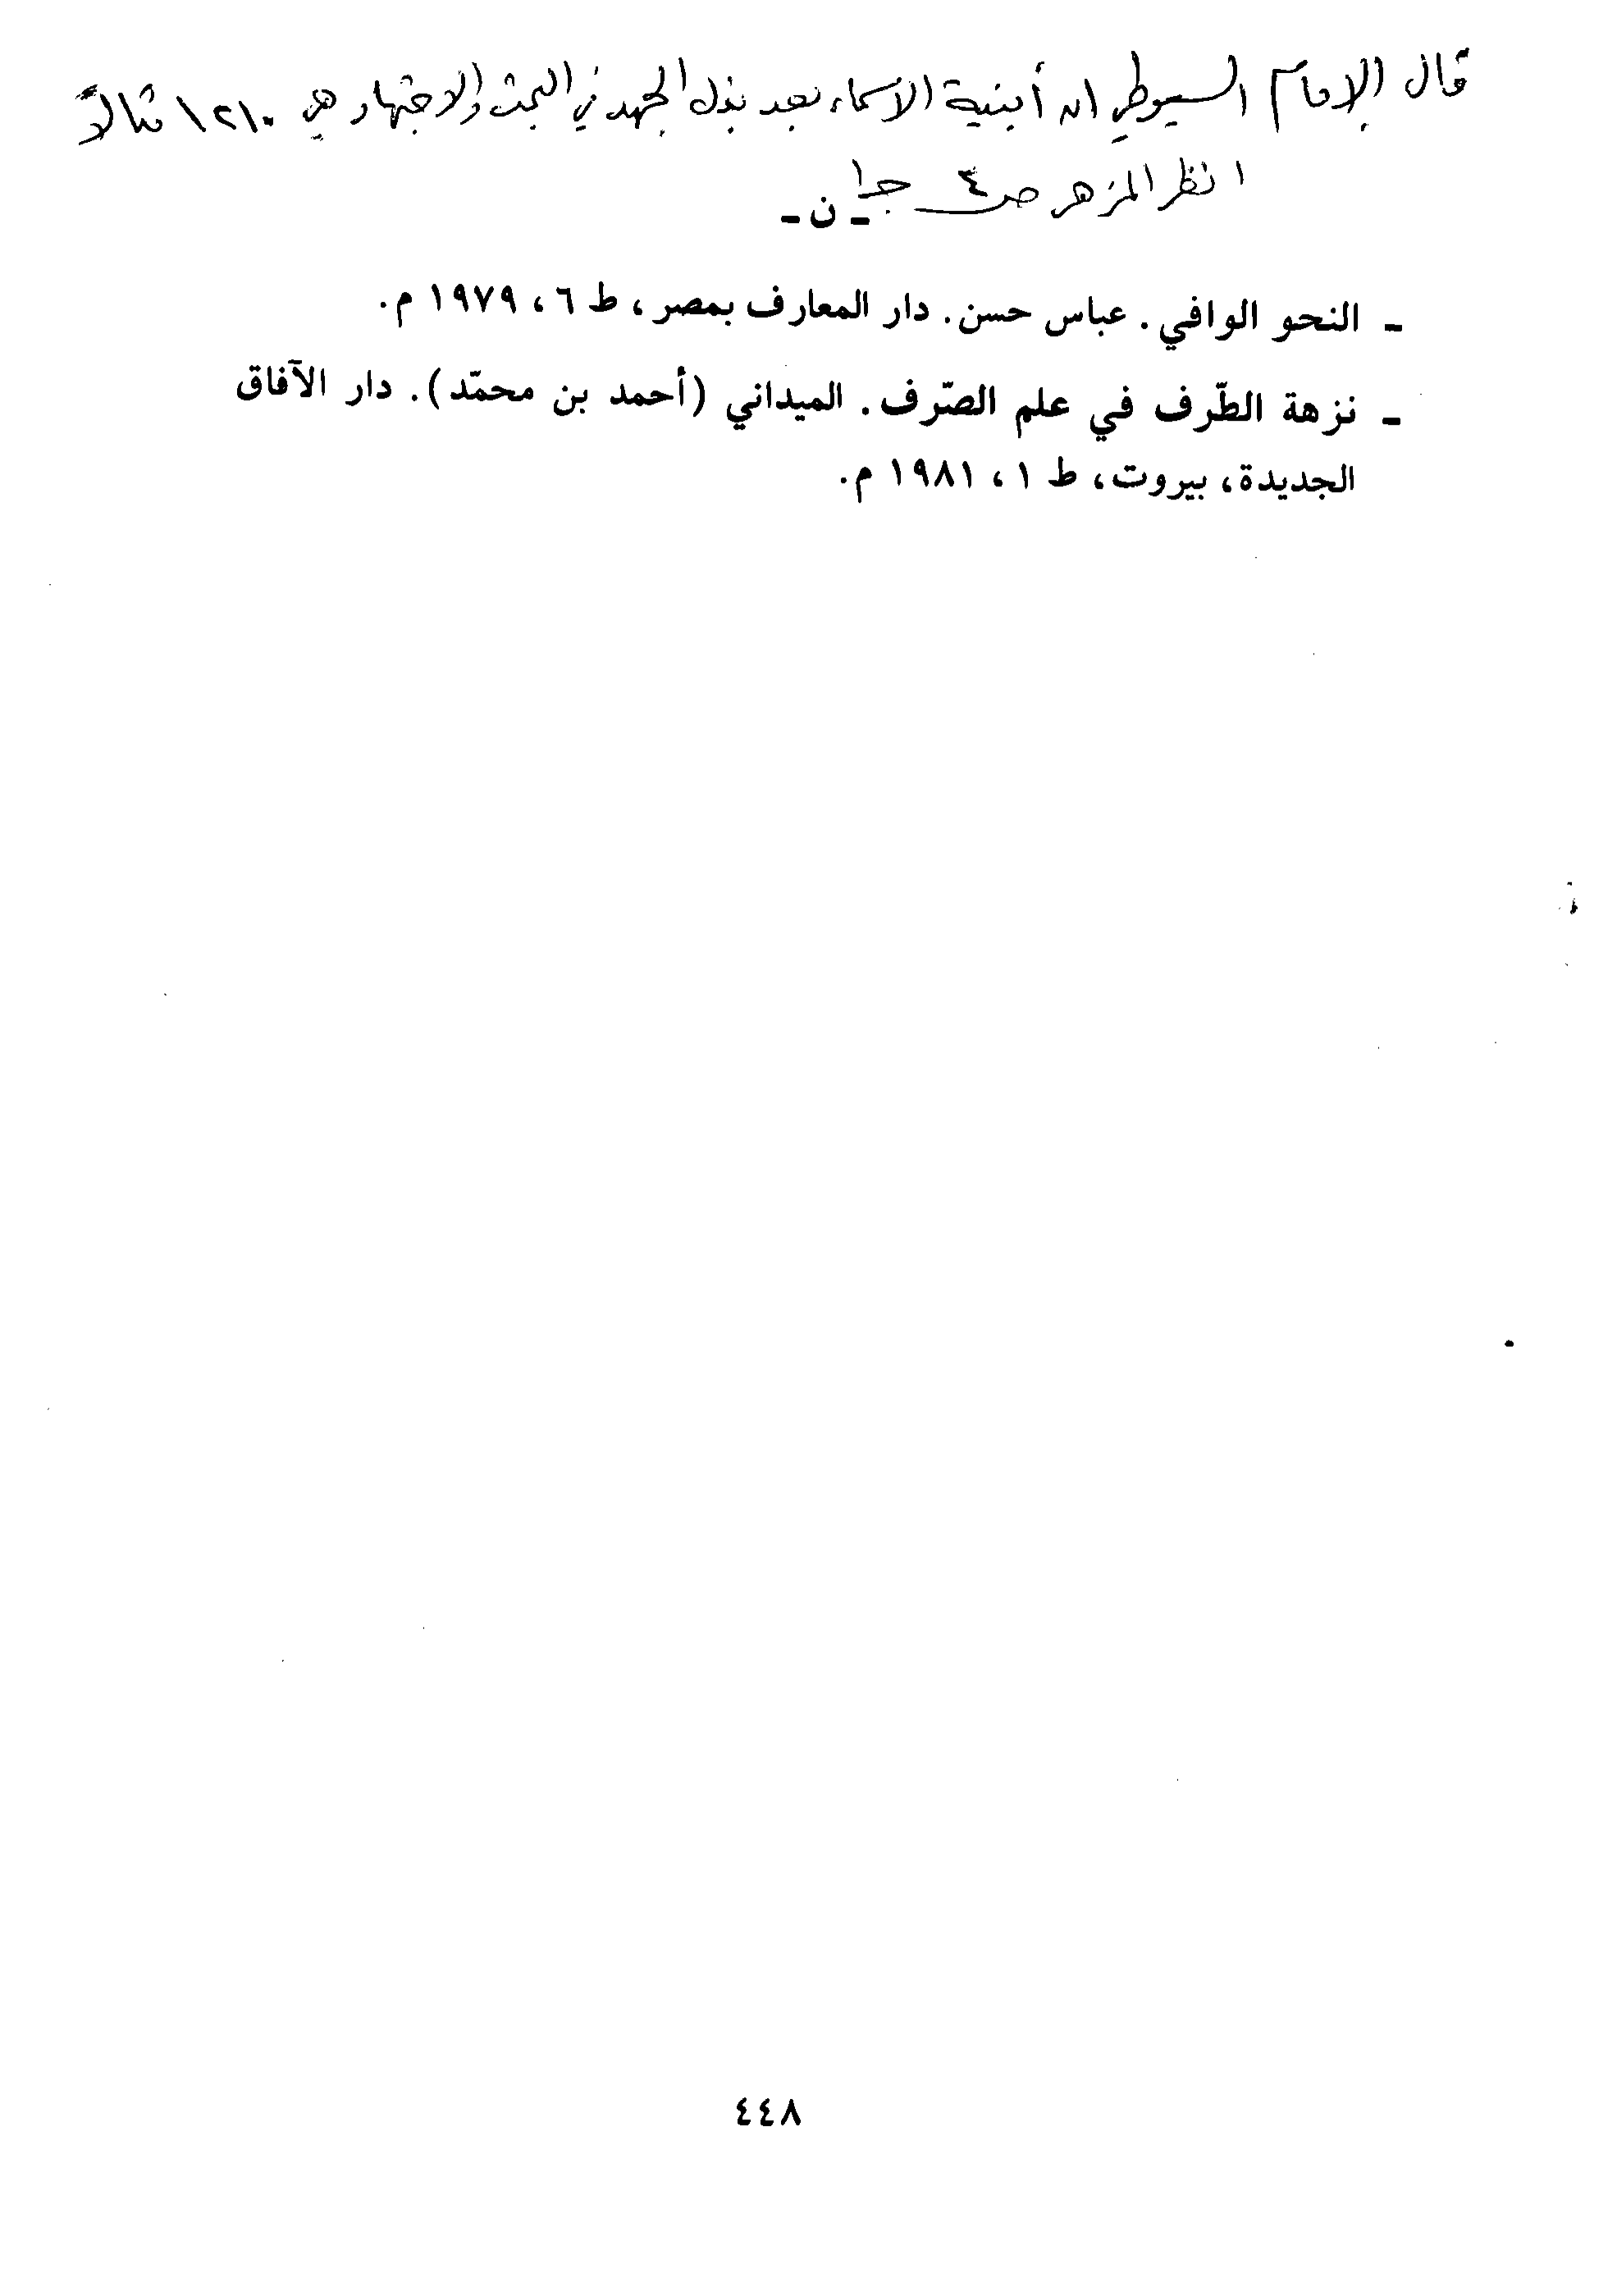 قال الإمام السيوطي ان أبنية الأسماء بعد بذل الجهد في البحث والاجتهاد هي ١٢١٠ مثالاً
انظر المزهر ص٤ جـ١
- ن -
- النحو الوافي. عباس حسن. دار المعارف بمصر، ط ٦، ١٩٧٩ م.
- نزهة الطّرف في علم الصّرف. الميداني (أحمد بن محمّد). دار الآفاق
الجديدة، بيروت، ط ١، ١٩٨١ م.
٤٤٨